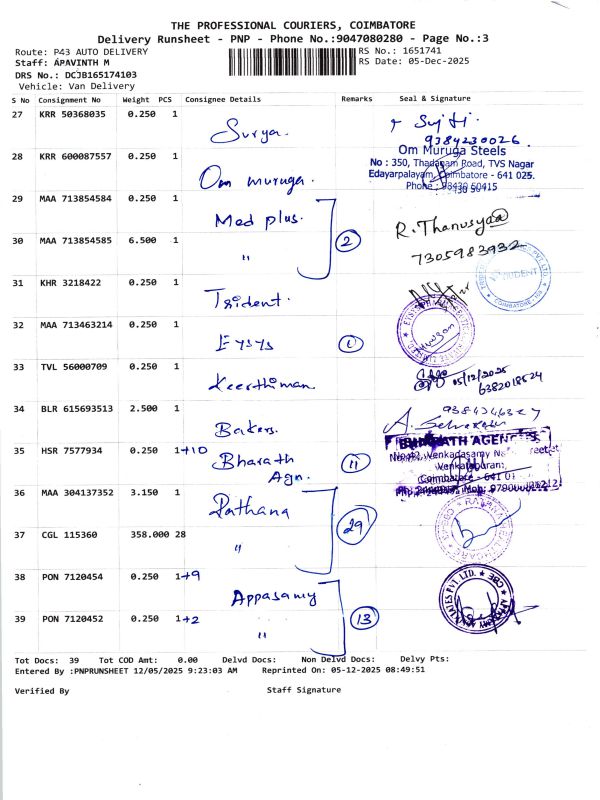 THE PROFESSIONAL COURIERS, COIMBATORE
Delivery Runsheet - PNP - Phone No.:9047080280 - Page No.:3
Route: P43 AUTO DELIVERY RS No.: 1651741
Staff: APAVINTH M RS Date: 05-Dec-2025
DRS No.: DCJB165174103
Vehicle: Van Delivery
S No Consignment No Weight PCS Consignee Details Remarks Seal & Signature
27 KRR 50368035 0.250 1 Surya.
9384230026.
28 KRR 600087557 0.250 1 Om muruga.
Om Muruga Steels
No : 350, Thadagam Road, TVS Nagar
Edayarpalayam, Coimbatore - 641 025.
Phone : 98430 50415
29 MAA 713854584 0.250 1 Med plus.
R. Thanusyaa
30 MAA 713854585 6.500 1 " 2
7305983932
31 KHR 3218422 0.250 1 Trident.
TRIDENT
COIMBATORE
32 MAA 713463214 0.250 1 Eysys 1
33 TVL 56000709 0.250 1 Keerthiman
05/12/2025
6382018524
34 BLR 615693513 2.500 1 Bakers.
35 HSR 7577934 0.250 1+10 Bharath Agn. 11
BHARATH AGENCIES
Venkadasamy
Venkatapuram,
Coimbatore - 641 01
36 MAA 304137352 3.150 1 Rathana
37 CGL 115360 358.000 28 " 29
38 PON 7120454 0.250 1+9 Appasamy
39 PON 7120452 0.250 1+2 " 13
Tot Docs: 39 Tot COD Amt: 0.00 Delvd Docs: Non Delvd Docs: Delvy Pts:
Entered By :PNPRUNSHEET 12/05/2025 9:23:03 AM Reprinted On: 05-12-2025 08:49:51
Verified By Staff Signature